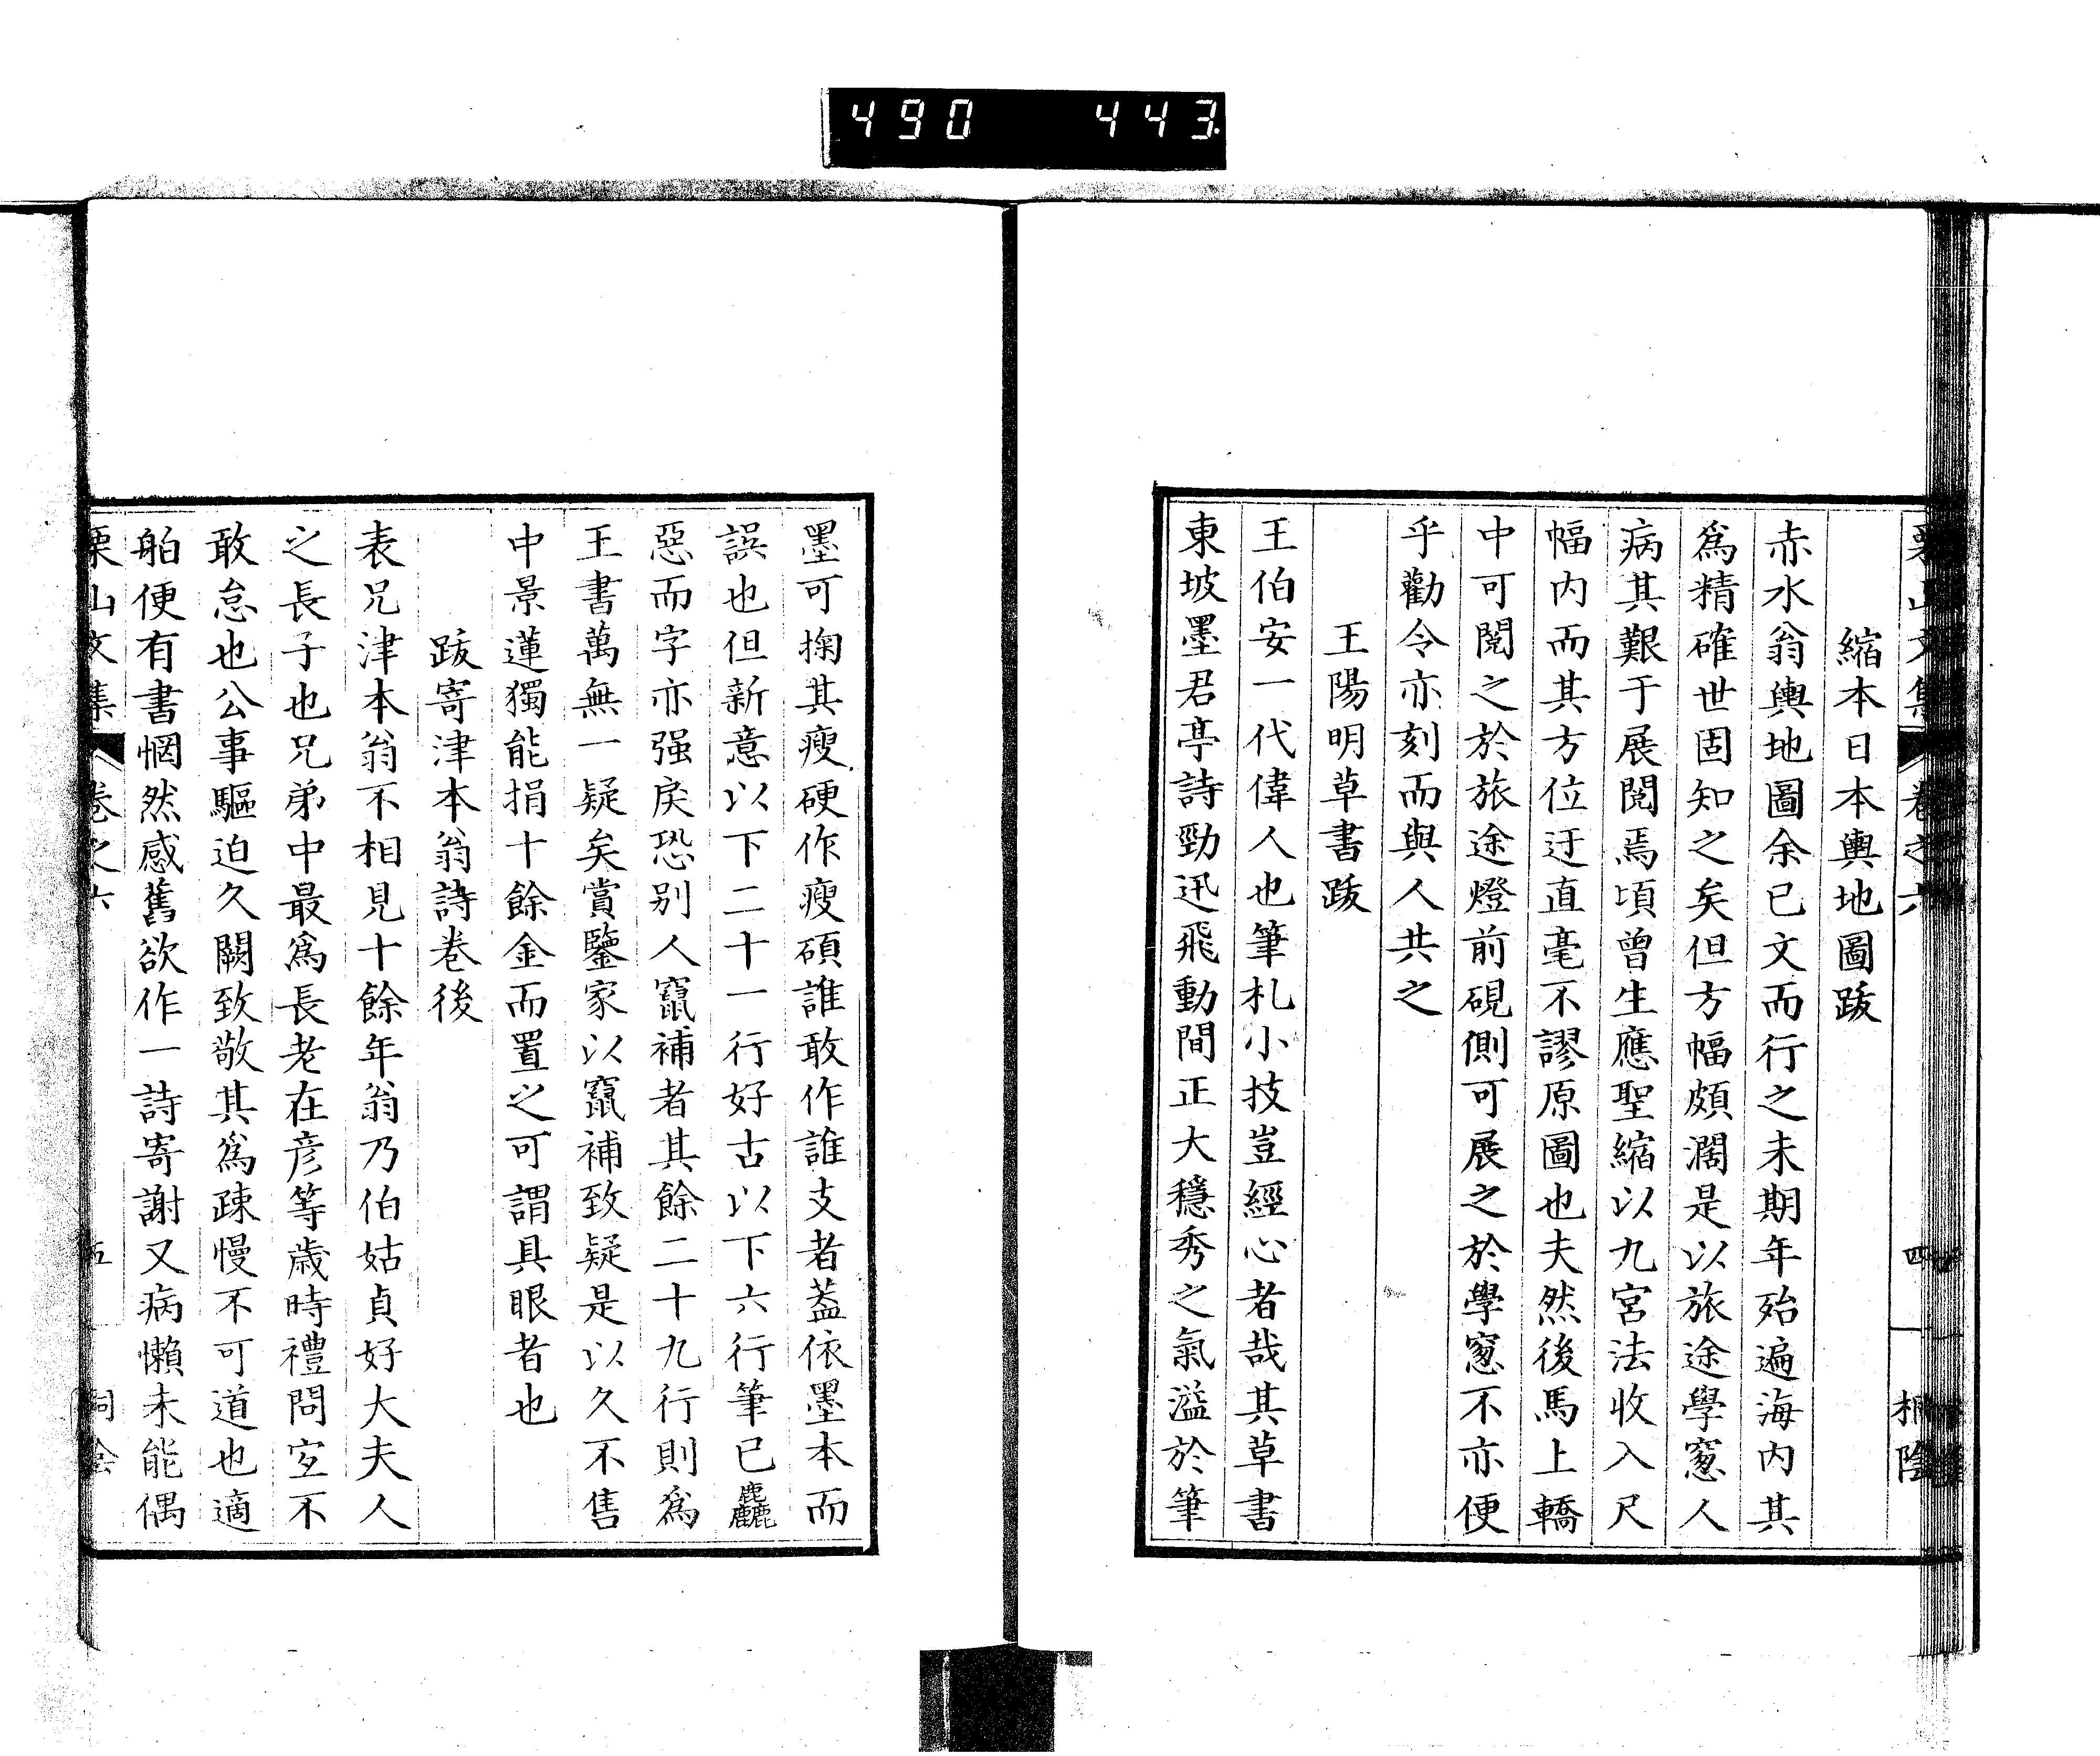 490 443
縮本日本輿地圖跋
赤水翁輿地圖余已文而行之未期年殆遍海内其
爲精確世固知之矣但方幅頗濶是以旅途學窓人
病其艱于展閲焉頃曽生應聖縮以九宮法收入尺
幅内而其方位迂直毫不謬原圖也夫然後馬上轎
中可閲之於旅途燈前硯側可展之於學窓不亦便
乎勸令亦刻而與人共之
王陽明草書跋
王伯安一代偉人也筆札小技豈經心者哉其草書
東坡墨君亭詩勁迅飛動間正大穩秀之氣溢於筆
墨可掬其瘦硬作瘦碩誰敢作誰支者葢依墨本而
誤也但新意以下二十一行好古以下六行筆已麤
惡而字亦强戾恐别人竄補者其餘二十九行則爲
王書萬無一疑矣賞鑒家以竄補致疑是以久不售
中景蓮獨能捐十餘金而置之可謂具眼者也
跋寄津本翁詩巻後
表兄津本翁不相見十餘年翁乃伯姑貞好大夫人
之長子也兄弟中最爲長老在彦等歳時禮問宜不
敢怠也公事驅迫久闕致敬其爲疎慢不可道也適
舶便有書惘然感舊欲作一詩寄謝又病懶未能偶
栗山文集 巻之六 五